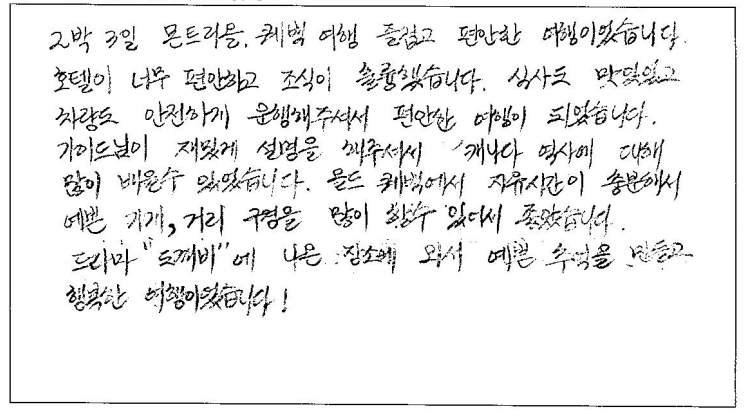 2박 3일 몬트리올, 퀘벡 여행 즐겁고 편안한 여행이었습니다.
호텔이 너무 편안하고 조식이 훌륭했습니다. 식사도 맛있었고
차량도 안전하게 운행해주셔서 편안한 여행이 되었습니다.
가이드님이 재밌게 설명을 해주셔서 캐나다 역사에 대해
많이 배울수 있었습니다. 올드 퀘벡에서 자유시간이 충분해서
예쁜 가게, 거리 구경을 많이 할수 있어서 좋았습니다.
드라마 "도깨비"에 나온 장소에 와서 예쁜 추억을 만들고
행복한 여행이었습니다!